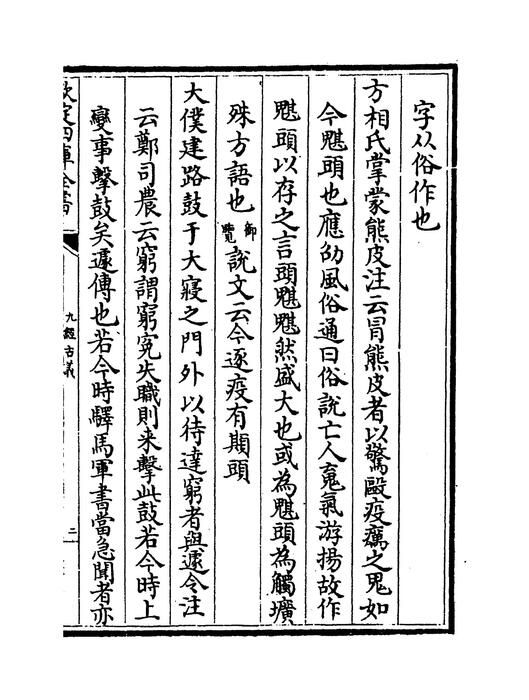 字从俗作也
方相氏掌蒙熊皮注云冐熊皮者以驚毆疫癘之鬼如
今魌頭也應劭風俗通曰俗說亡人䰟氣游揚故作
魌頭以存之言頭魌魌然盛大也或為魌頭為觸壙
殊方語也御覽說文云今逐疫有䫏頭
大僕建路鼓于大寢之門外以待達窮者與遽令注
云鄭司農云窮謂窮寃失職則来擊此鼓若今時上
變事擊鼓矣遽傳也若今時驛馬軍書當急聞者亦
欽定四庫全書
九經古義